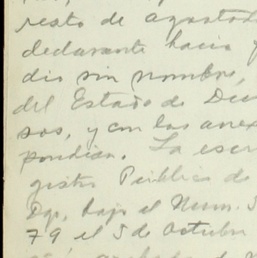 resto de agostad
declarante hacia y
dio sin nombre,
del Estado de Du
sos, y con los anex
pondian. La escri
gistro Público de
Dgo, bajo el Num. 3
79 el 5 de Octubre